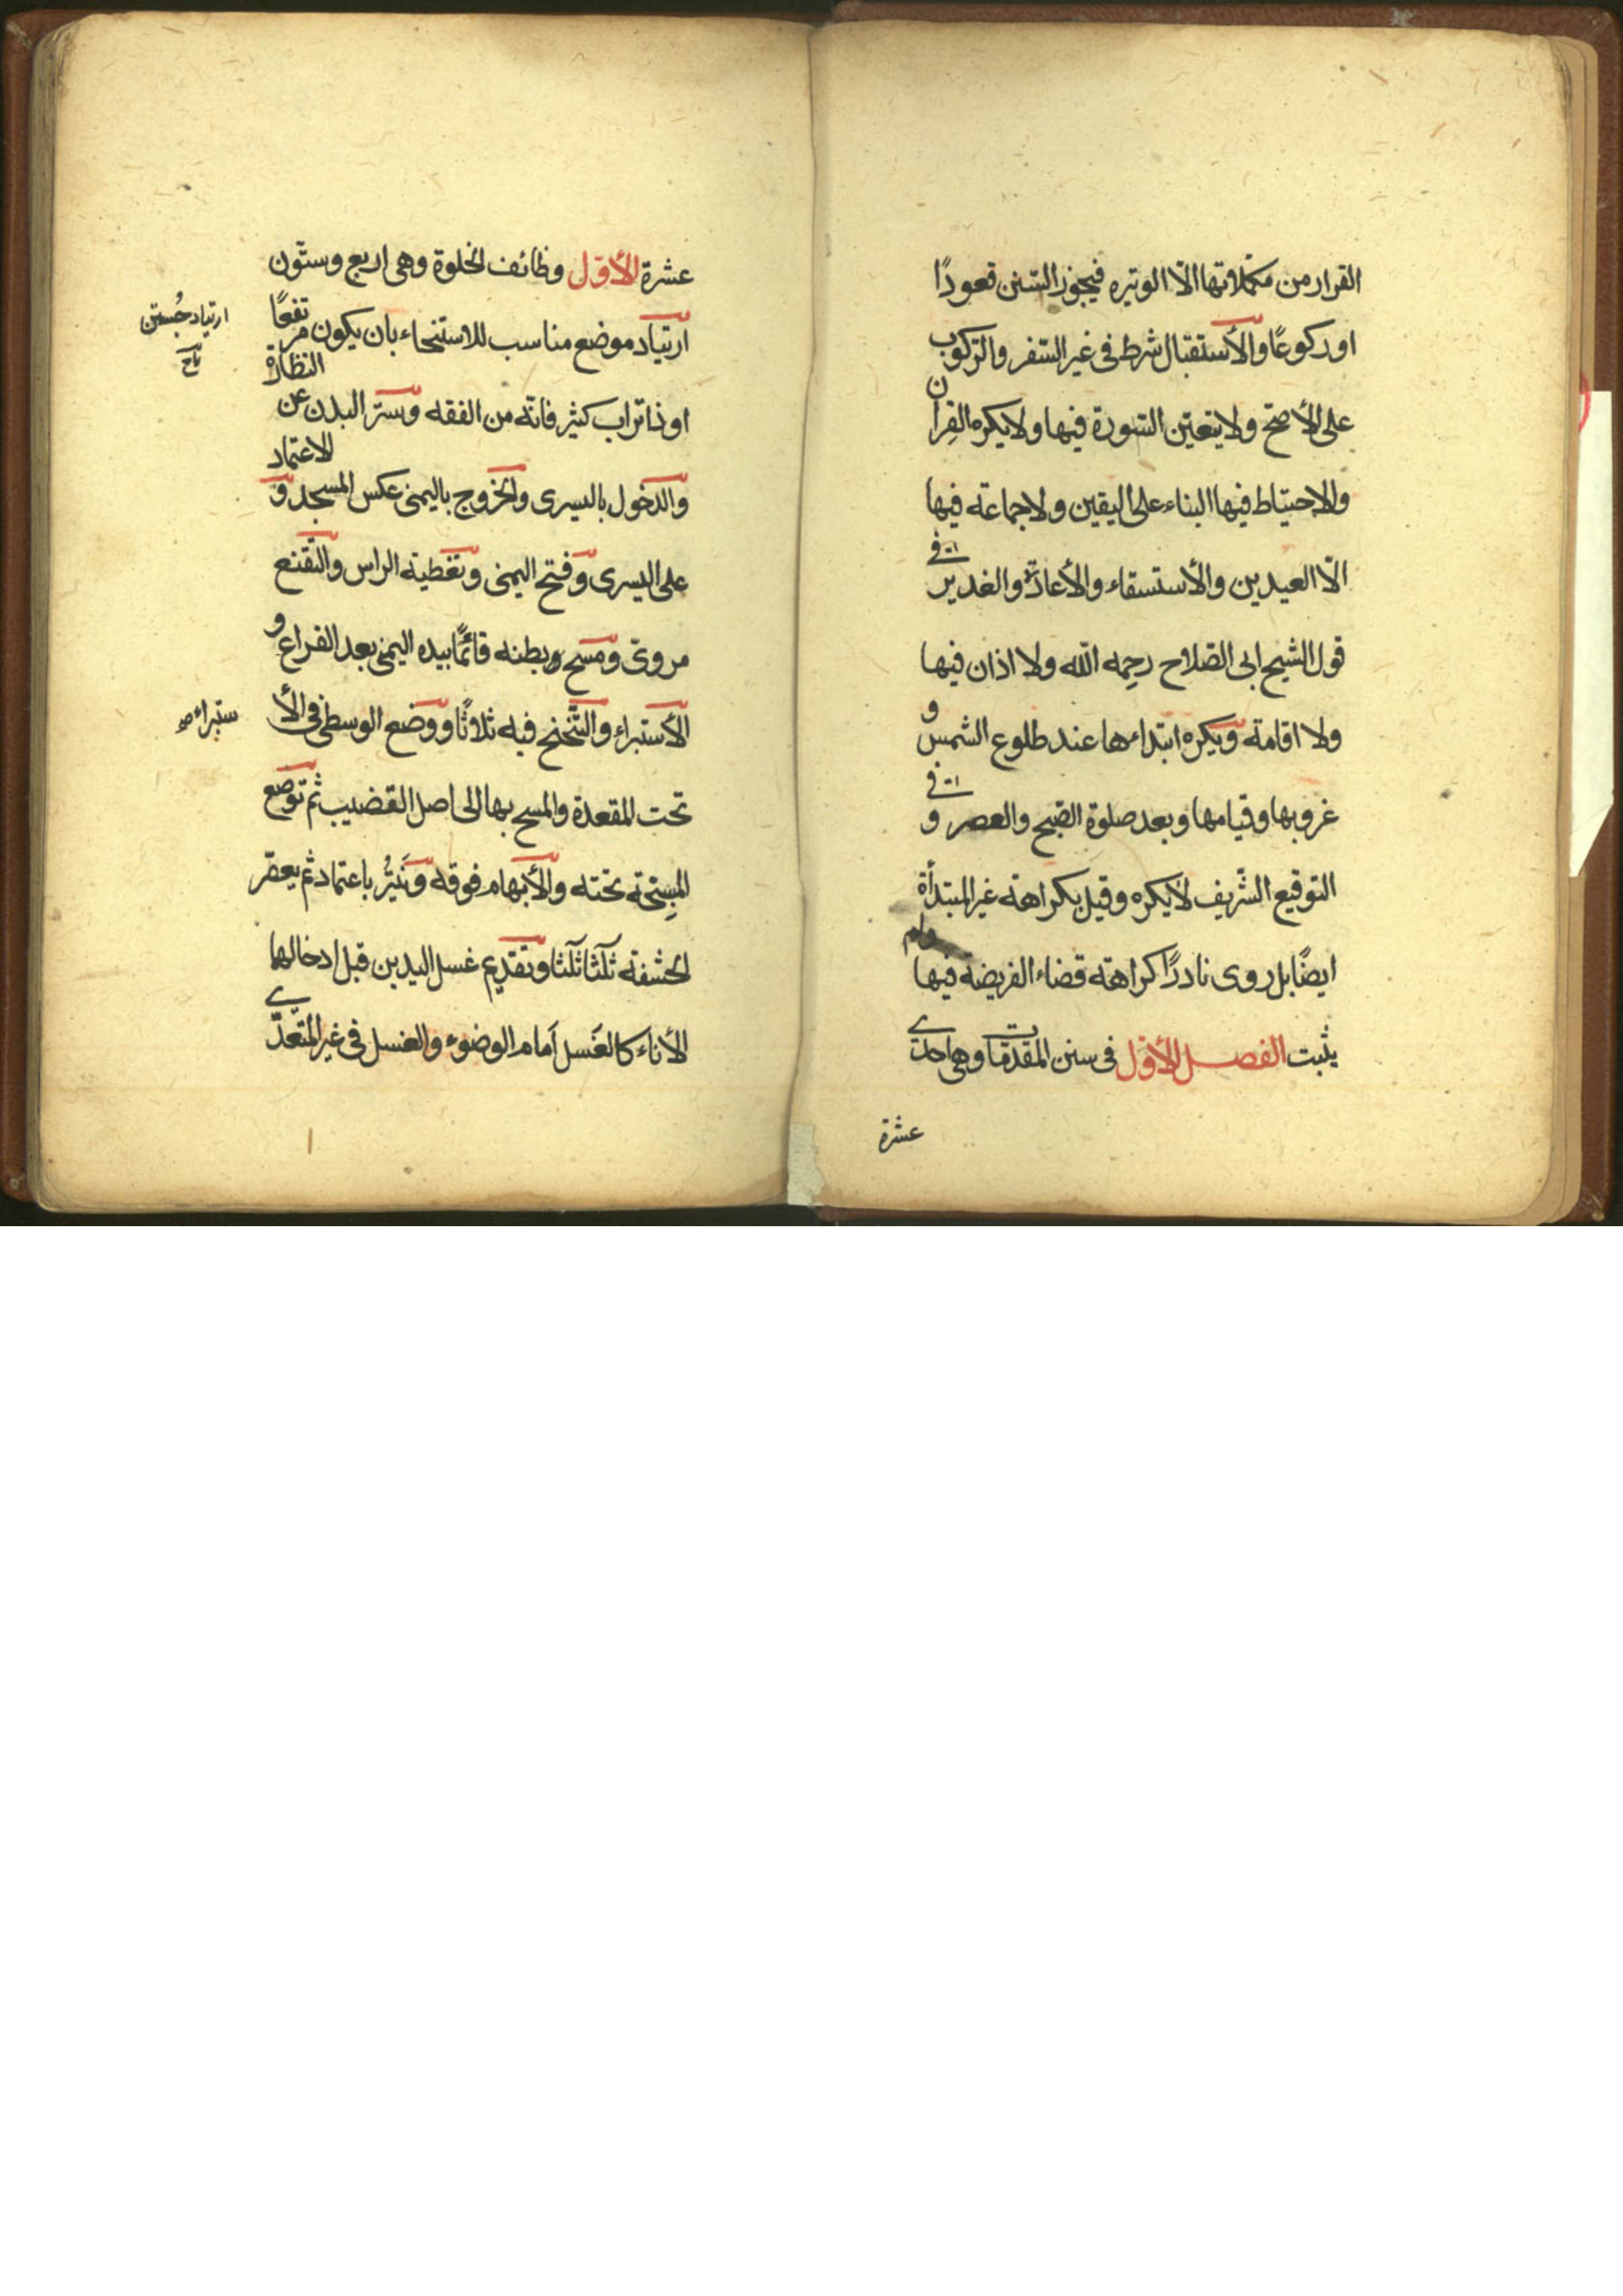 القرار من مكملاتها الّا الوتيره فيجوز السّنن قعودًا
او ركوعًا والأستقبال شرط فى غير السّفر والرّكوب
على الأصحّ ولا يتعيّن السّورة فيها ولا يكره القِران
والاحتياط فيها البناء على اليقين ولا جماعة فيها
الّا العيدين والأستسقاء والأعادة والغدير فى
قول الشيخ ابى الصّلاح رحِمه اللّه ولا اذان فيها
ولا اقامة ويكره ابتداءها عند طلوع الشمس و
غروبها وقيامها وبعد صلوة الصّبح والعصر و فى
التوقيع الشّريف لا يكره وقيل بكراهة غير المبتدأة
ايضًا بل روى نادرًا كراهة قضاء الفريضة فيها ولم
يثبت الفصل الأوّل فى سنن المقدّمات وهى احدى
عشرة
عشرة الأوّل وظائف الخلوة وهى اربع وستّون
ارتياد موضع مناسب للاستنجاء بان يكون مرتفعًا
او ذا تراب كثير فانّه من الفقه وستر البدن عن النظارة
والدّخول باليسرى والخروج باليمنى عكس المسجد و الاعتماد
على اليسرى وفتح اليمنى وتغطية الراس والتّقنع
مروىّ ومسح بطنه قائمًا بيده اليمنى بعد الفراغ و
الأستبراء والتّنحنح فيه ثلاثًا ووضع الوسطى فى الأ
ستبراء
تحت المقعدة والمسح بها الى اصل القضيب ثم توضع
المسبّحة تحته والأبهام فوقه وَيَنتُر باعتماد ثم يعصّر
الحشفة ثلثًا ثلثًا وتقديم غسل اليدين قبل ادخالها
الأناء كالغَسل اَمام الوضوء والغسل فى غير المتعدّى
ارتياد جُستن
تاج